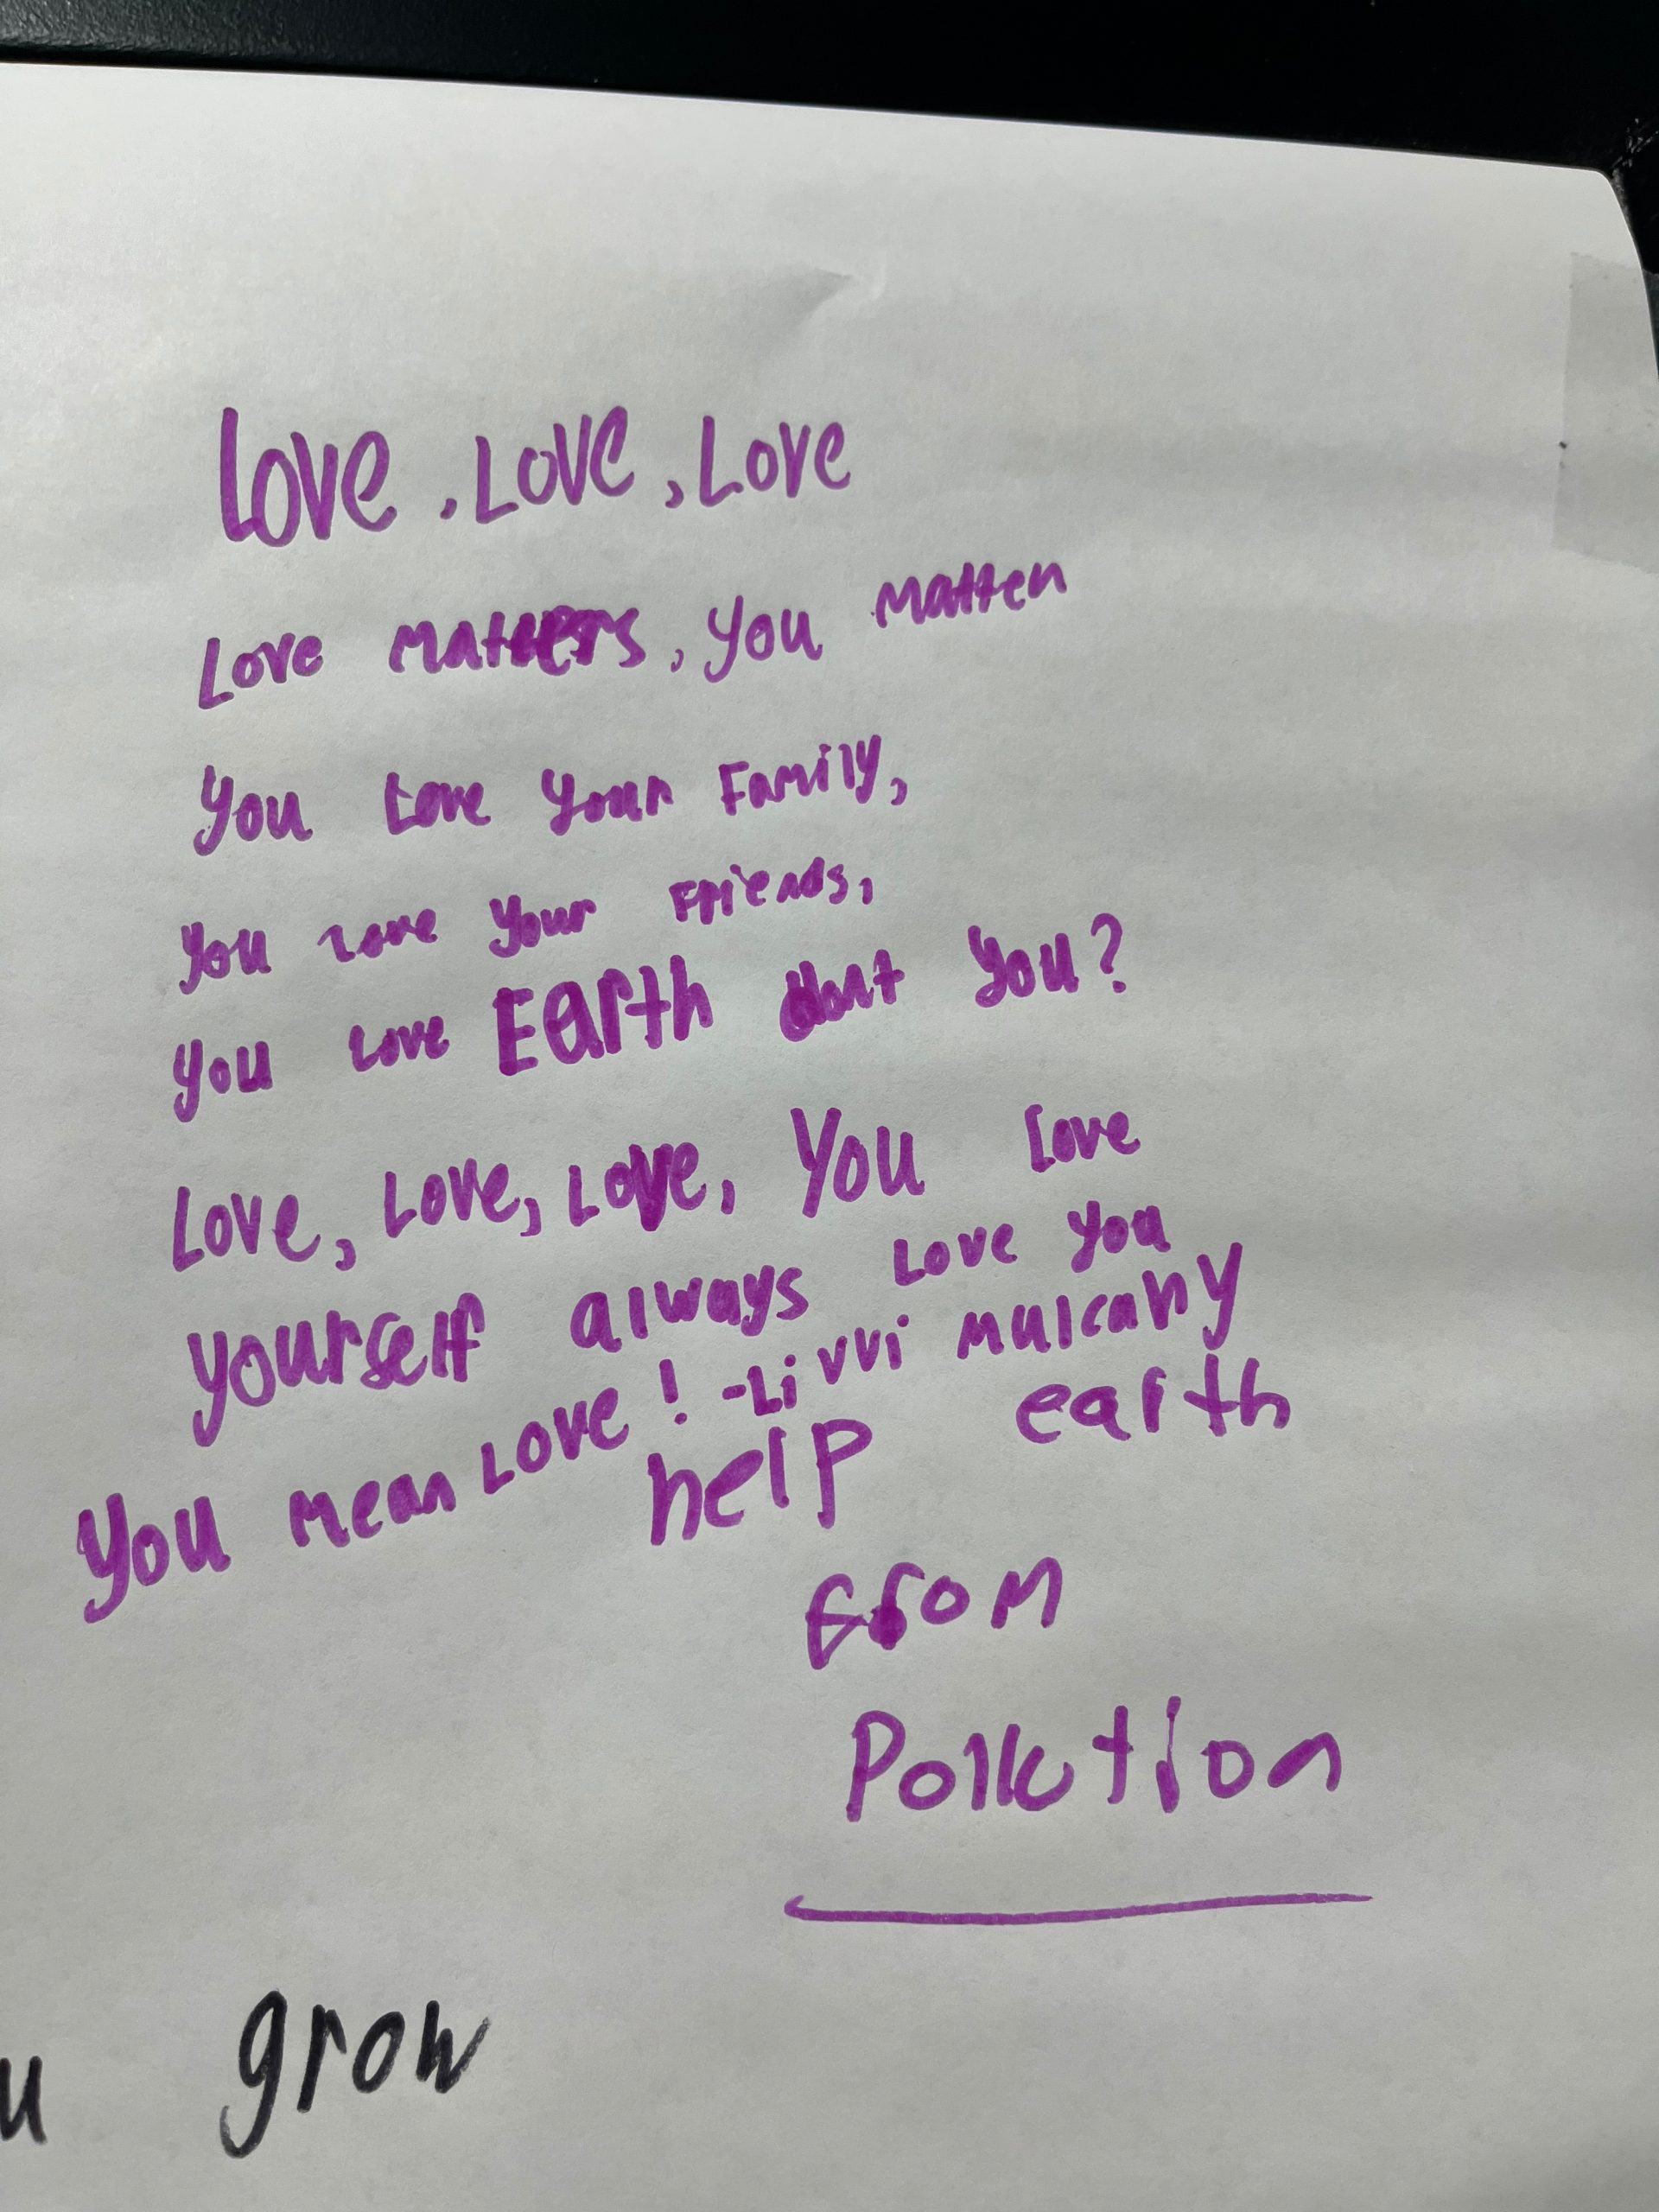 Love, Love, Love
Love Matters, you Matter
you Love your Family,
you Love your Friends,
you Love Earth dont you?
Love, Love, Love, You Love
yourself always Love you
You Mean Love! -Livvi Mulcahy
help earth
from
Pollution
u grow